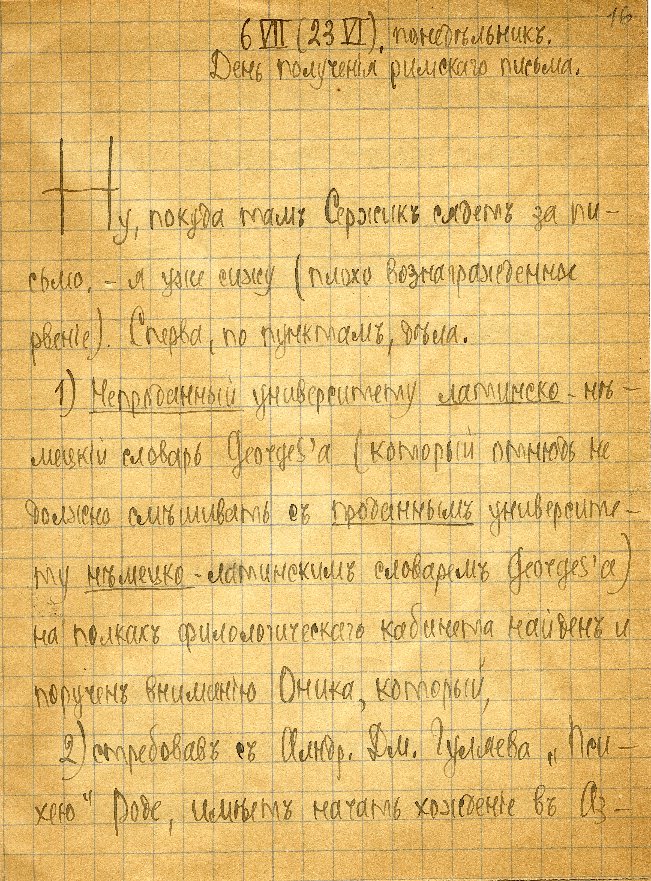 16
6 VII (23 VI), понедѣльникъ.
День полученія римскаго письма.
Ну, покуда тамъ Сержикъ сядетъ за пи-
сьмо, - я уже сижу (плохо вознагражденное
рвеніе). Сперва, по пунктамъ, дѣла.
1) Непроданный университету латинско-нѣ-
мецкій словарь Georges'a (который отнюдь не
должно смѣшивать съ проданнымъ университе-
ту нѣмецко-латинскимъ словаремъ Georges'a)
на полкахъ филологическаго кабинета найденъ и
порученъ вниманію Оника, который,
2) стребовавъ съ Алндр. Дм. Гуляева „Пси-
хею" Роде, имѣетъ начать хожденіе въ Аз-